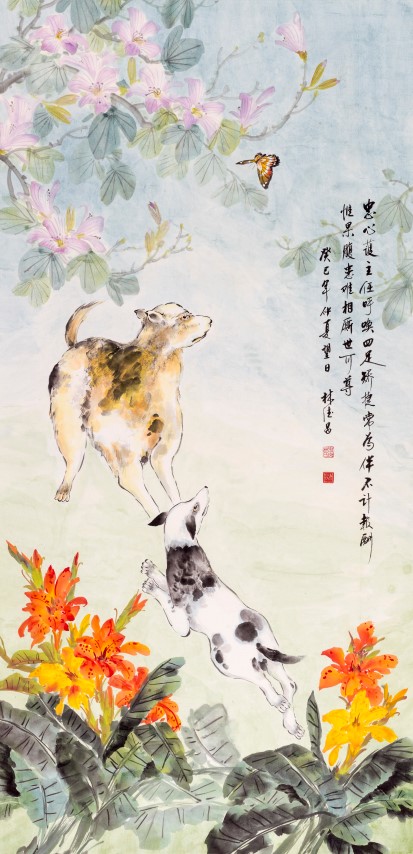 忠心護主任呼喚四足矯捷常為伴不計報酬
性果腹患難相廝世可尊
癸巳年仲夏望日 林德昌